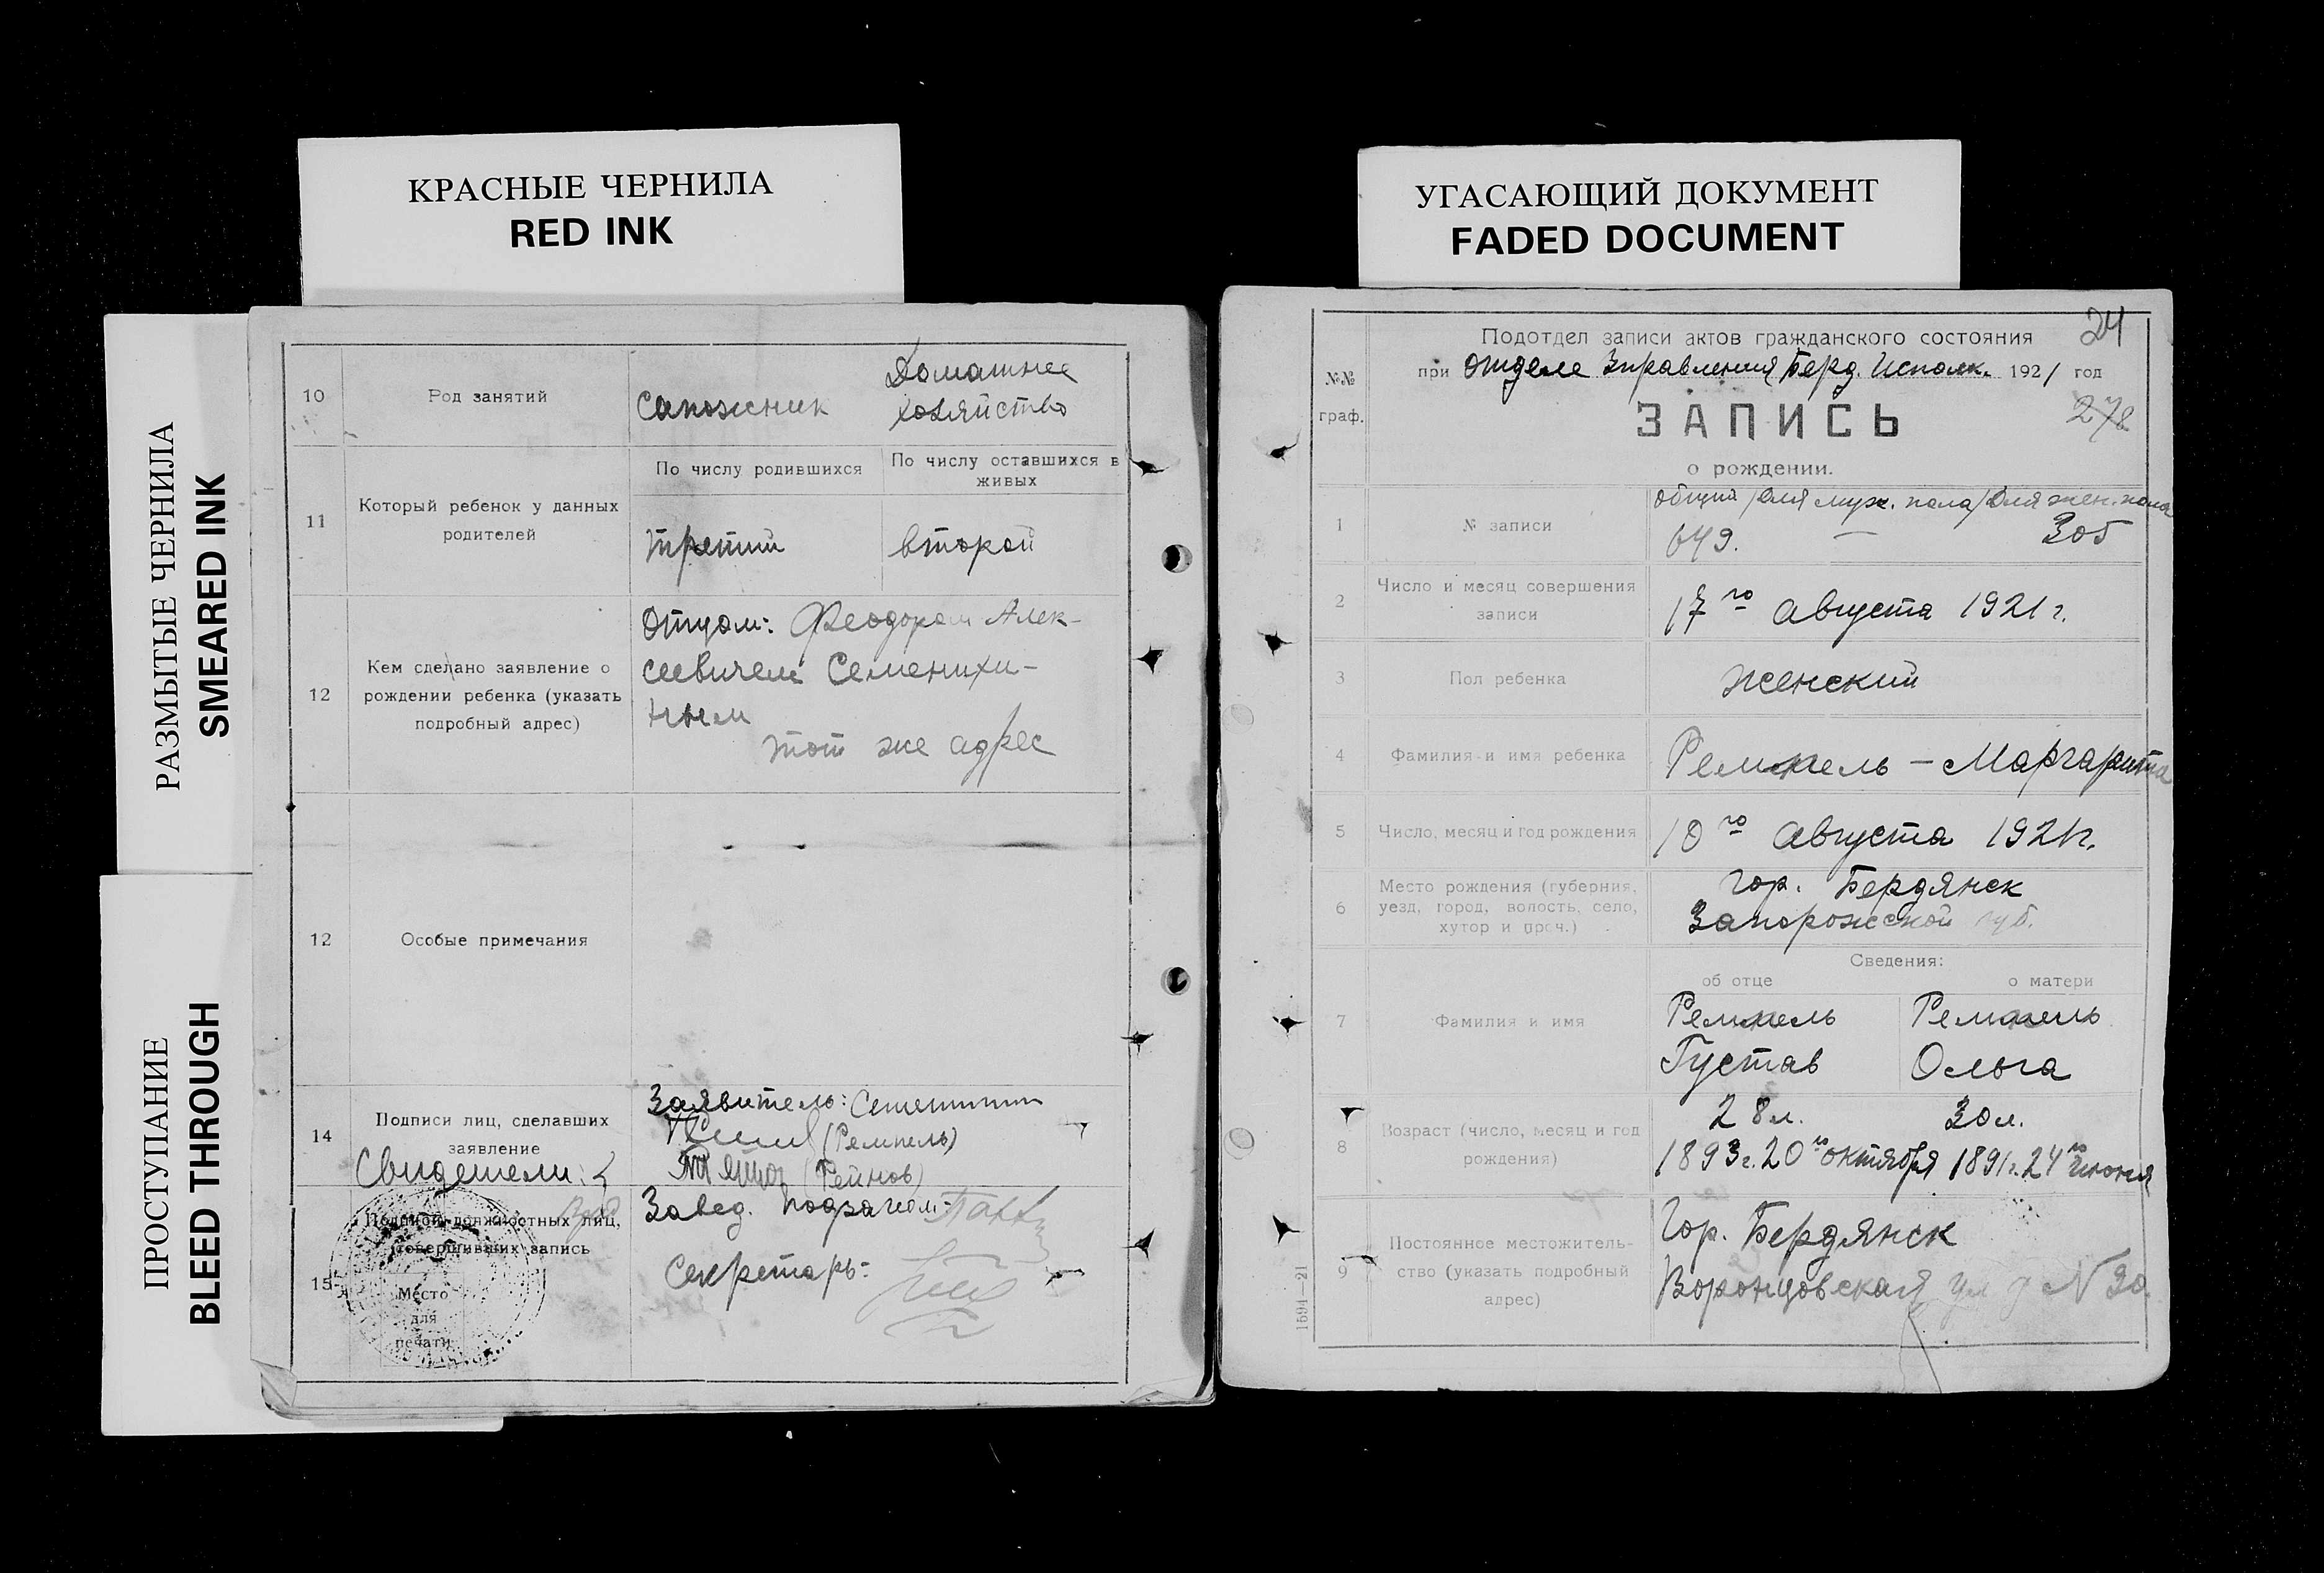 КРАСНЫЕ ЧЕРНИЛА
RED INK
УГАСАЮЩИЙ ДОКУМЕНТ
FADED DOCUMENT
РАЗМЫТЫЕ ЧЕРНИЛА
SMEARED INK
ПРОСТУПАНИЕ
BLEED THROUGH
10
Род занятий
сапожник
Домашнее
хозяйство
11
Который ребенок у данных
родителей
По числу родившихся
По числу оставшихся в
живых
третий
второй
12
Кем сделано заявление о
рождении ребенка (указать
подробный адрес)
Отцом: Феодором Алек-
сеевичем Семенихи-
ным
тот же адрес
12
Особые примечания
14
Подписи лиц, сделавших
заявление
Свидетели:
Заявитель:
(Ремпель)
(Рейнов)
15
Подписи должностных лиц,
совершивших запись
Место
для
печати
Завед. подзагсом:
Секретарь:
24
Подотдел записи актов гражданского состояния
при отделе Управления Берд. Исполк. 1921 год
№№
граф.
ЗАПИСЬ
278
о рождении.
1
№ записи
общий / для муж. пола / для жен. пола
649. — 305
2
Число и месяц совершения
записи
17го августа 1921 г.
3
Пол ребенка
женский
4
Фамилия и имя ребенка
Ремпель – Маргарита
5
Число, месяц и год рождения
10го августа 1921 г.
6
Место рождения (губерния,
уезд, город, волость, село,
хутор и проч.)
Гор. Бердянск
Запорожской губ.
7
Фамилия и имя
Сведения:
об отце
о матери
Ремпель
Густав
Ремпель
Ольга
8
Возраст (число, месяц и год
рождения)
28 л.
30 л.
1893 г. 20го октября
1891 г. 24го июня
9
Постоянное местожитель-
ство (указать подробный
адрес)
Гор. Бердянск
Воронцовская ул д N 30.
1594—21